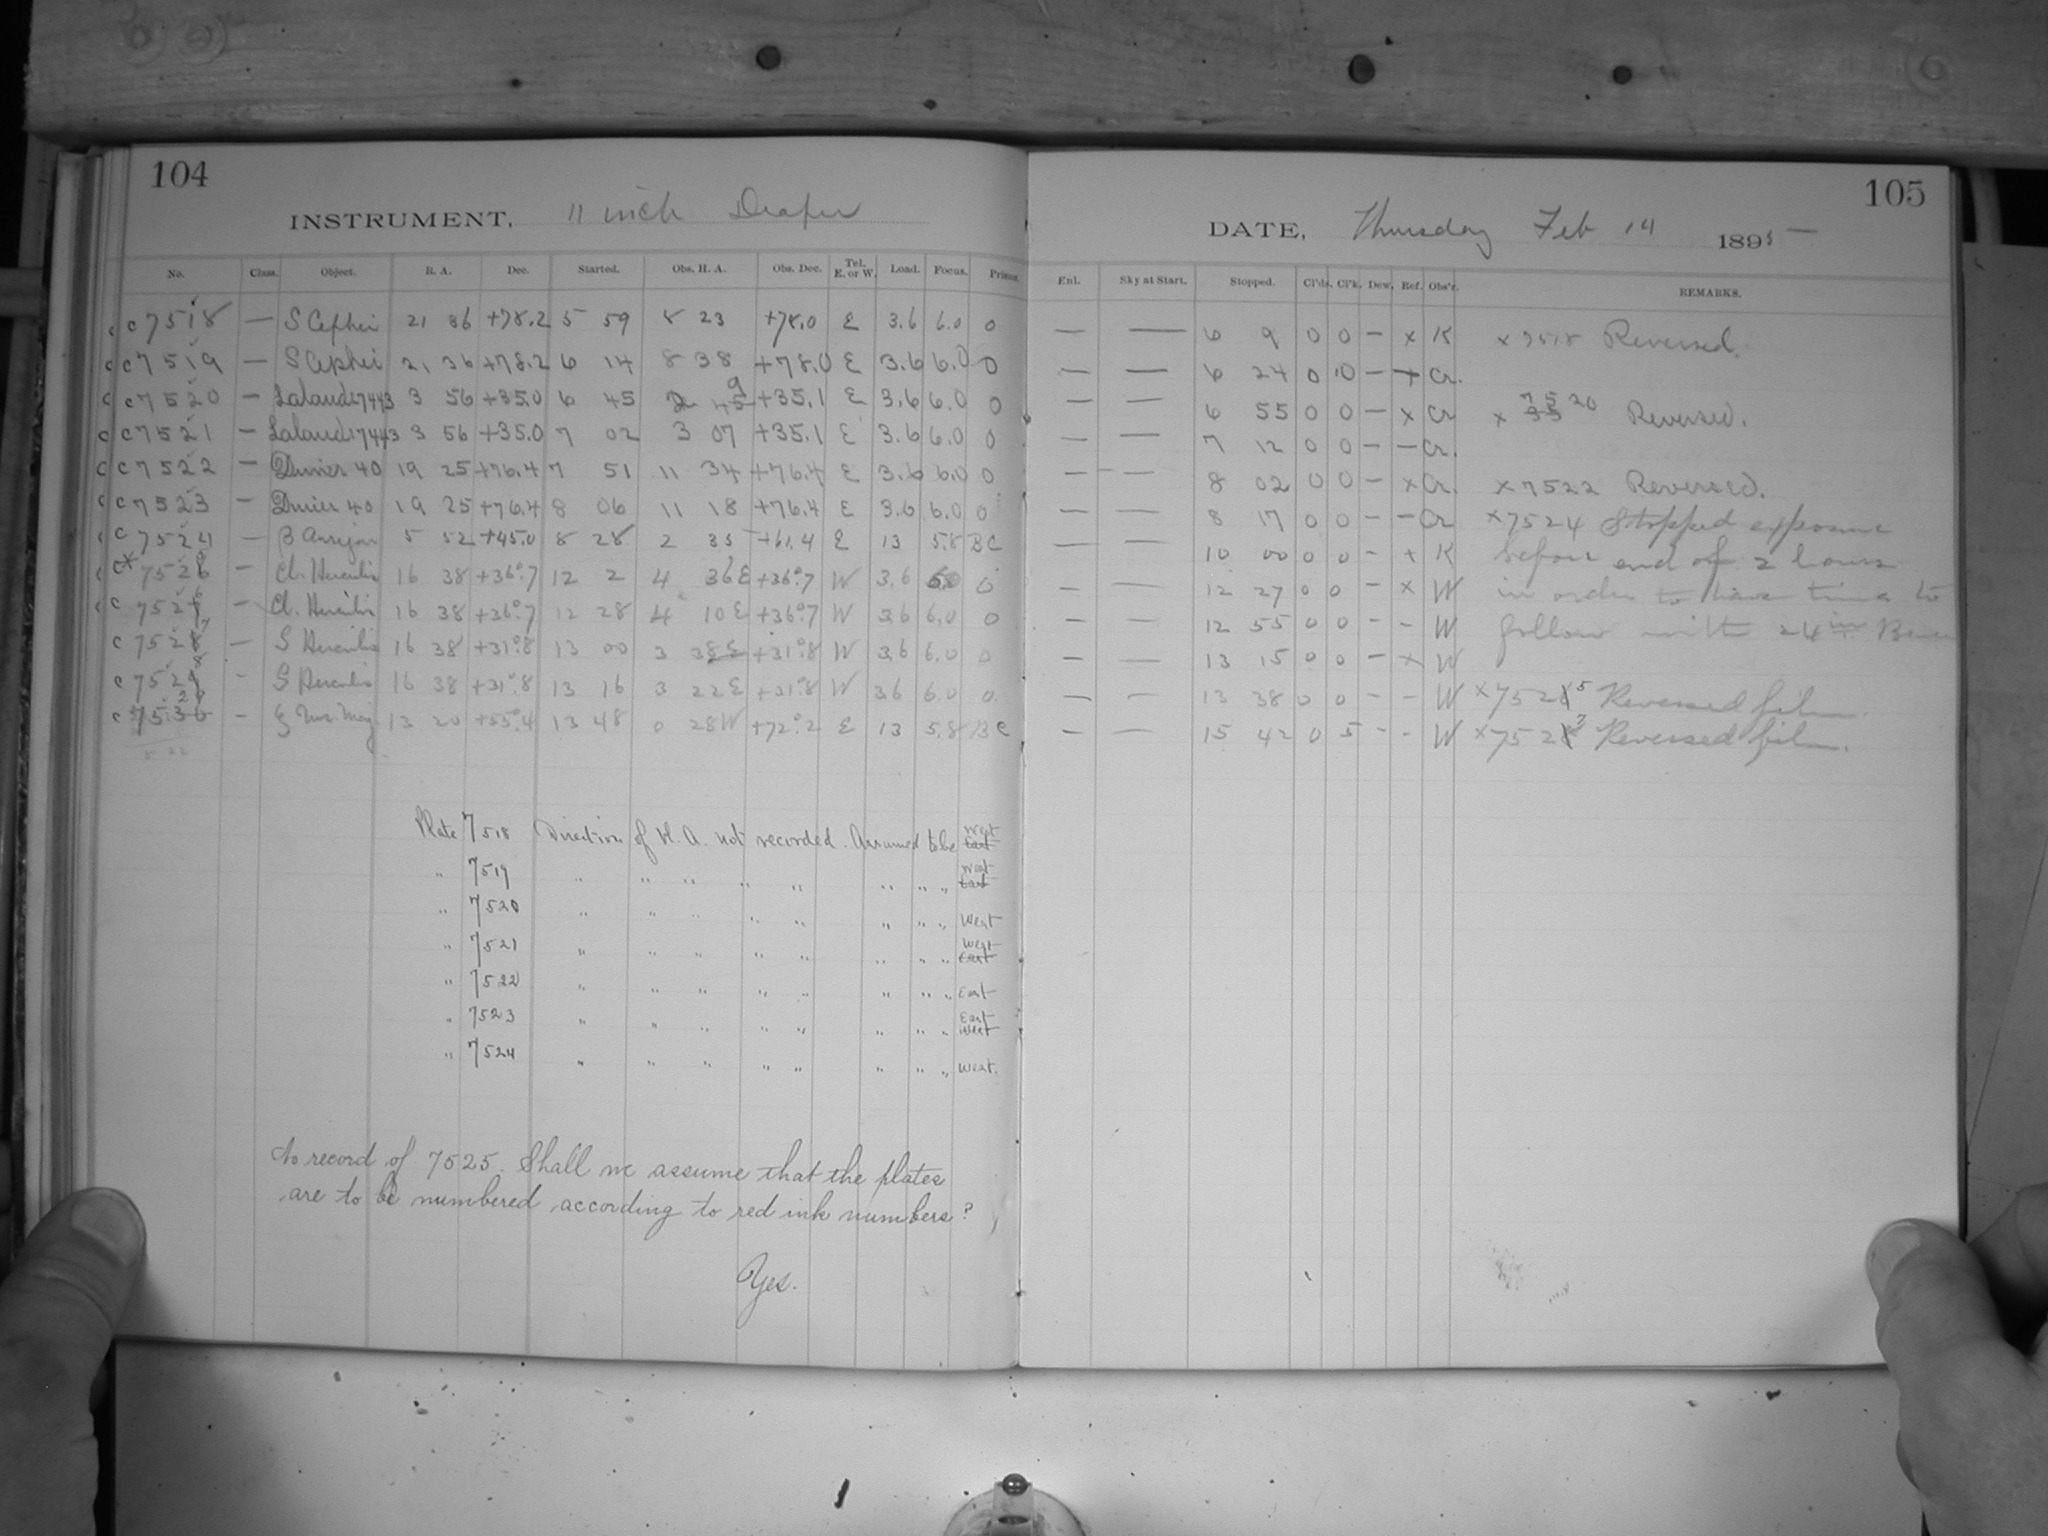 104
INSTRUMENT, 11 inch Draper
No. Class. Object. R. A. Dec. Started. Obs. H. A. Obs. Dec. Tel. E. or W. Load. Focus. Prisms.
c c 7518 — S Cephei 21 36 +78.2 5 59 8 23 +78.0 E 3.6 6.0 0
c c 7519 — S Cephei 21 36 +78.2 6 14 8 38 +78.0 E 3.6 6.0 0
c c 7520 — Lalande 7443 3 56 +35.0 6 45 2 49 +35.1 E 3.6 6.0 0
c c 7521 — Lalande 7443 3 56 +35.0 7 02 3 07 +35.1 E 3.6 6.0 0
c c 7522 — 40 19 25 +76.4 7 51 11 34 +76.4 E 3.6 6.0 0
c c 7523 — 40 19 25 +76.4 8 06 11 18 +76.4 E 3.6 6.0 0
c c 7524 — β 5 52 +45.0 8 28 2 35 +61.4 E 13 5.8 B C
c c 7526 5 — Cl. Herculis 16 38 +36°.7 12 2 4 36E +36°.7 W 3.6 6.0 0
c c 7527 6 — Cl. Herculis 16 38 +36°.7 12 28 4 10E +36°.7 W 3.6 6.0 0
c 7528 7 — S Herculis 16 38 +31°.8 13 00 3 38E +31°.8 W 3.6 6.0 0
c 7529 8 - S Herculis 16 38 +31°.8 13 16 3 22E +31°.8 W 36 6.0 0
c 7530 29 - ξ Urs. Maj 13 20 +55°.4 13 48 0 28W +72°.2 E 13 5.8 B C
Plate 7518 Direction of H. A. not recorded. Assumed to be West East
" 7519 " " " " " " " " West East
" 7520 " " " " " " " " West
" 7521 " " " " " " " " West East
" 7522 " " " " " " " " East
" 7523 " " " " " " " " East West
" 7524 " " " " " " " " West.
No record of 7525. Shall we assume that the plates
are to be numbered according to red ink numbers?
Yes.
105
DATE, Thursday Feb 14 1895
Enl. Sky at Start. Stopped. Cl'ds. Cl'k. Dew. Ref. Obs'r. REMARKS.
— — 6 9 0 0 — x K x 7518 Reversed.
— — 6 24 0 10 — + Cr.
— — 6 55 0 0 — x Cr x 7520 Reversed.
— — 7 12 0 0 — — Cr.
— — 8 02 0 0 — x Cr. x 7522 Reversed.
— — 8 17 0 0 — — Cr x 7524 Stopped exposure
— — 10 00 0 0 — + K before end of 2 hours
— — 12 27 0 0 — x W in order to have time to
— — 12 55 0 0 — - W follow with 24 in
— — 13 15 0 0 — x W
— — 13 38 0 0 - - W x 7526 5 Reversed film.
— — 15 42 0 5 - - W x 7528 7 Reversed film.